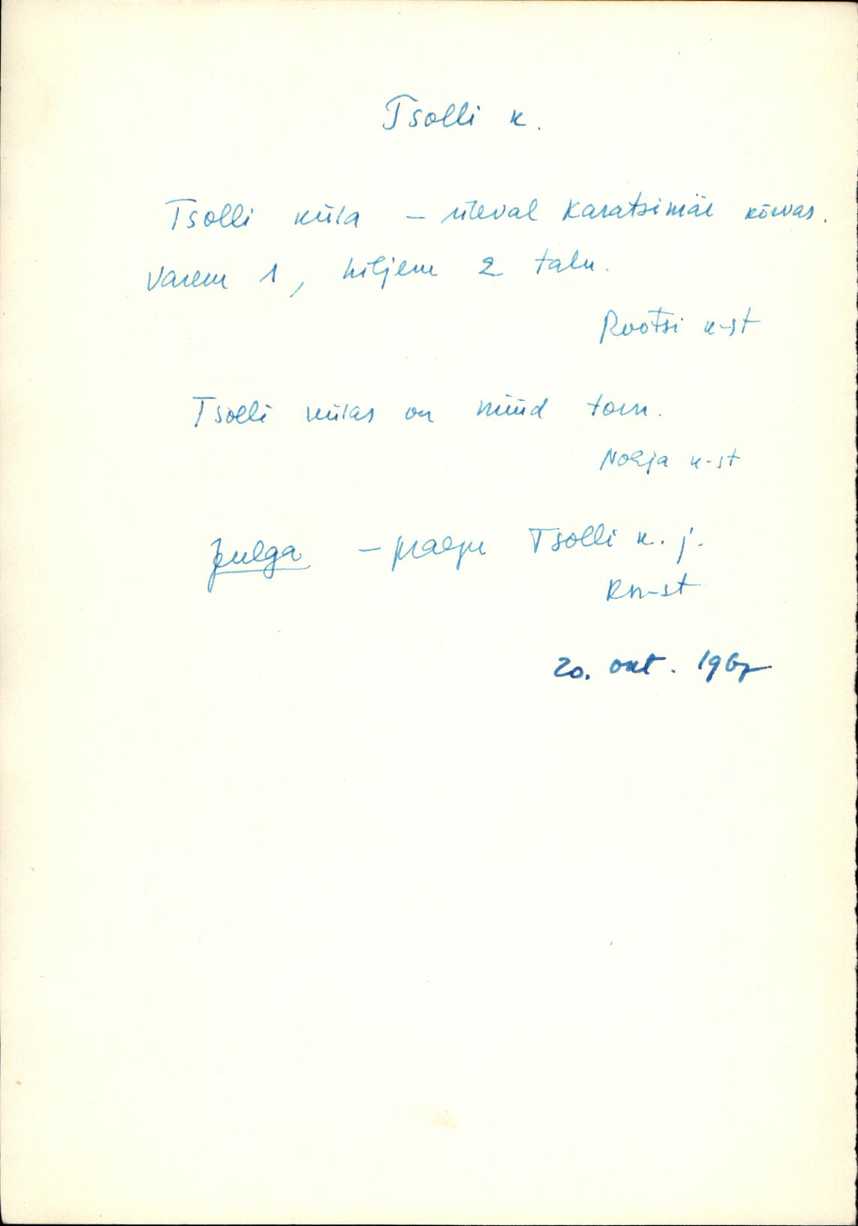 Tsolli k.
Tsolli küla – üleval Karatsimäe kõrvas.
Varem 1, hiljem 2 talu.
Rootsi k-st
Tsolli külas on nüüd torn.
Nohja k-st
Tsolli k. j.
20. okt. 1967